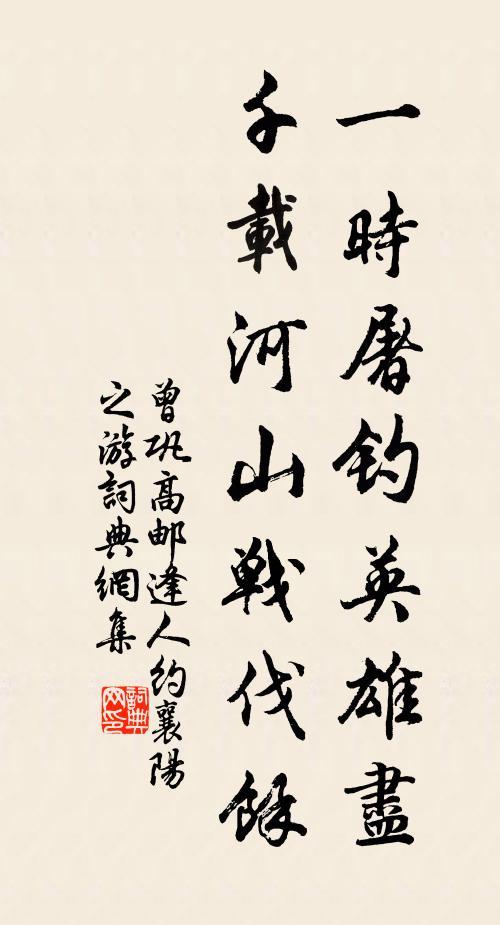 一時屠釣英雄盡
千載河山戰伐餘
曾巩高邮逢人约襄陽
之游詞典網集
詞典網印